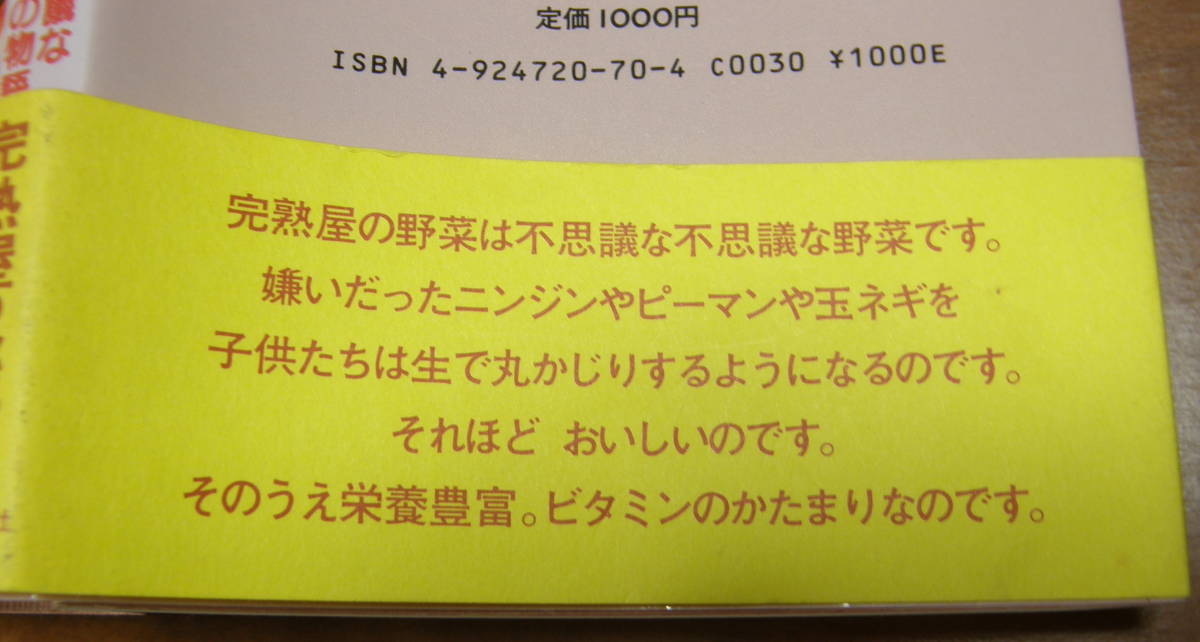 定価1000円
ISBN 4-924720-70-4 C0030 ¥1000E
完熟屋の野菜は不思議な不思議な野菜です。
嫌いだったニンジンやピーマンや玉ネギを
子供たちは生で丸かじりするようになるのです。
それほど おいしいのです。
そのうえ栄養豊富。ビタミンのかたまりなのです。
議な
の物
完熟屋
社